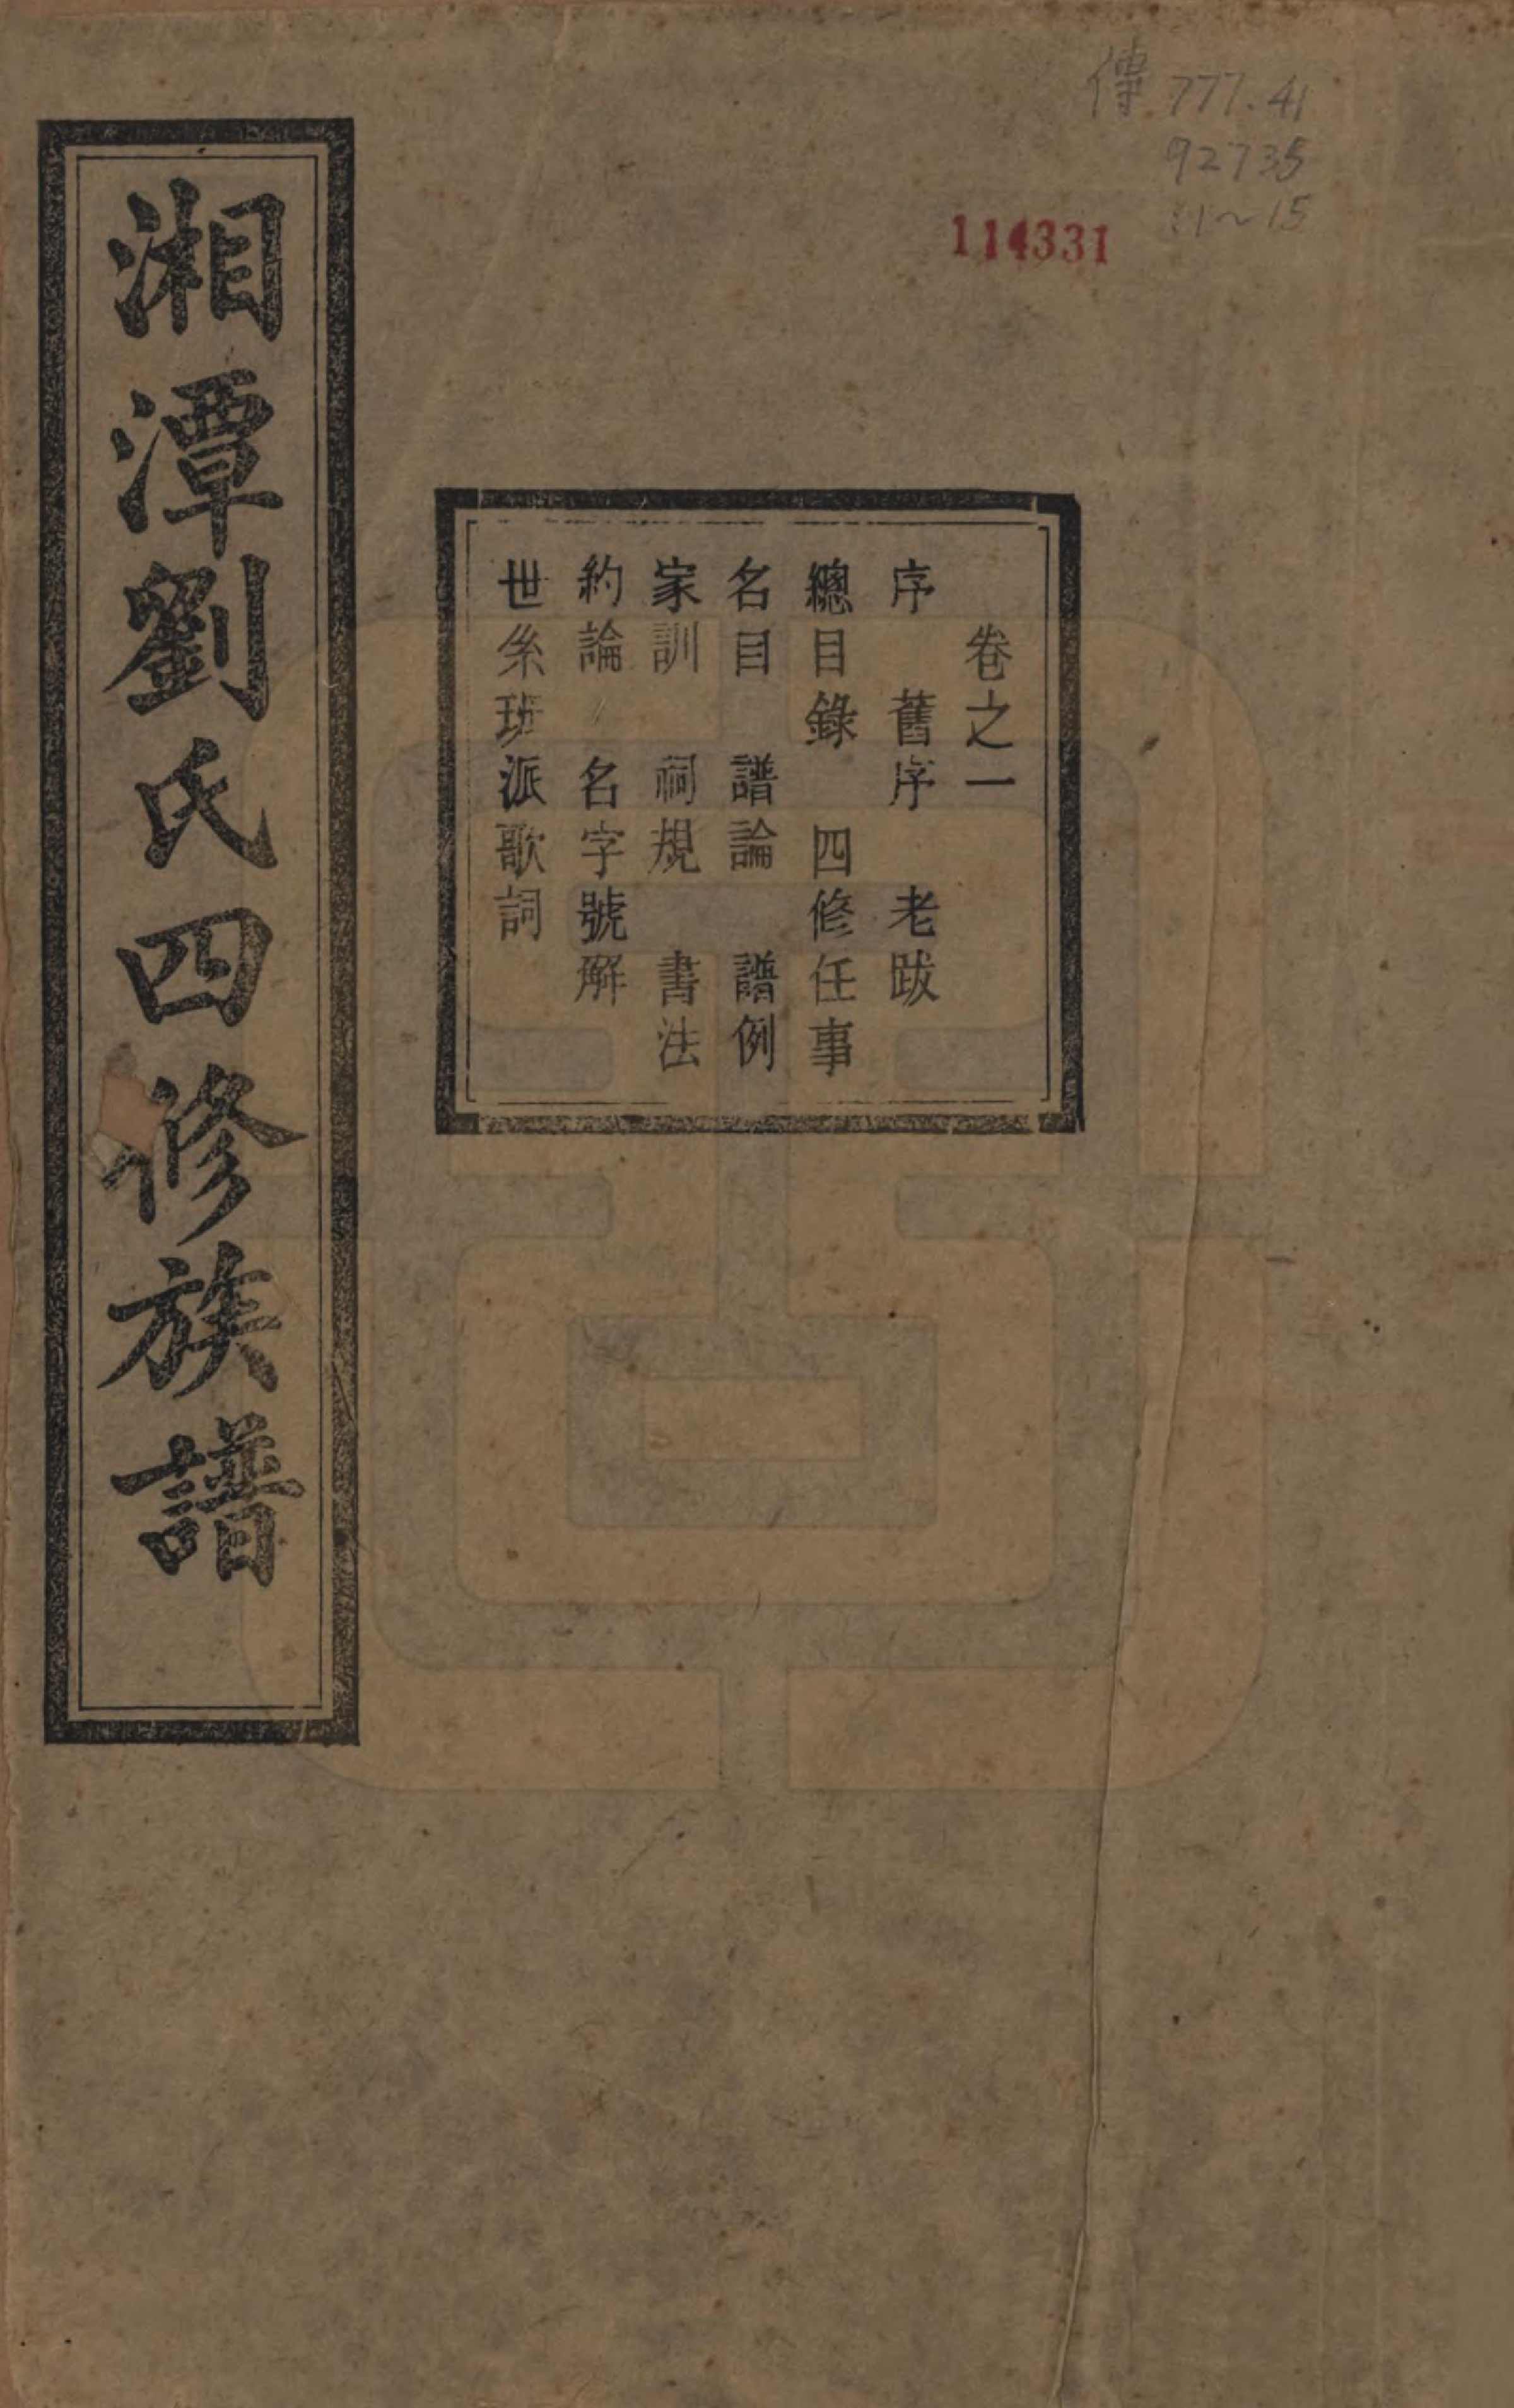 傳 777.41
92735
:1~15
114331
卷之一
序 舊序 老跋
總目錄 四修任事
名目 譜論 譜例
家訓 祠規 書法
約論 名字號解
世系班派歌詞
湘潭劉氏四修族譜